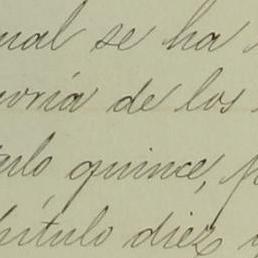 ual se ha
oría de los
ulo quince,
pítulo diez y